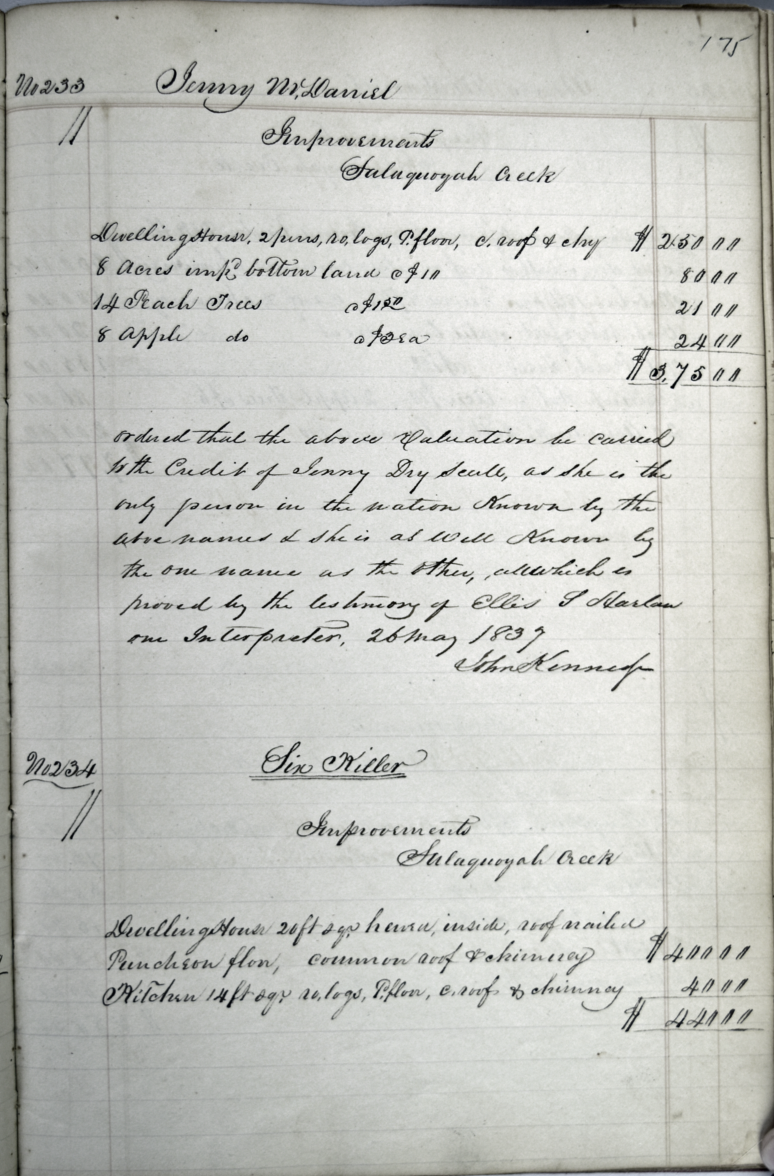 175
No 233 Jenny McDaniel
Improvements
Salaquoyah Creek
Dwelling House, 2 pens, ro, logs, P. floor, c. roof & chy $ 250 00
8 Acres impd bottom land @ $10 80 00
14 Peach Trees @ $1 50 21 00
8 Apple do @ $3 ea 24 00
$ 3,75 00
ordered that the above Valuation be carried
to the Credit of Jenny Dry Scull, as she is the
only person in the nation Known by the
above names & she is as Well Known by
the one name as the other, all which is
proved by the testimony of Ellis S Harlan
one Interpreter, 26 May 1837
John Kennedy
No 234 Six Killer
Improvements
Salaquoyah Creek
Dwelling House 20 ft sqr hewed, inside, roof nailed
Puncheon floor, common roof & chimney $ 400 00
Kitchen 14 ft sqr ro, logs, P. floor, c. roof & chimney 40 00
$ 440 00